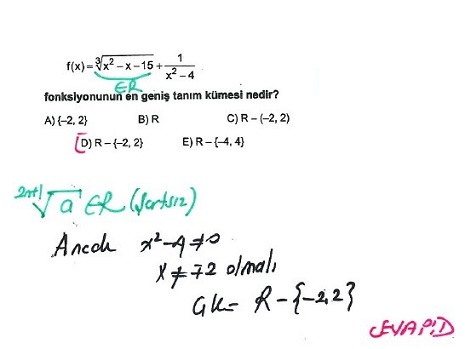 f(x) = ∛(x² − x − 15) + 1/(x² − 4)
ER
fonksiyonunun en geniş tanım kümesi nedir?
A) {−2, 2} B) R C) R − (−2, 2)
D) R − {−2, 2} E) R − {−4, 4}
2n+1√a ER (şartsız)
Ancak x² − 4 ≠ 0
x ≠ ∓2 olmalı
GK = R − {−2, 2}
CEVAP: D